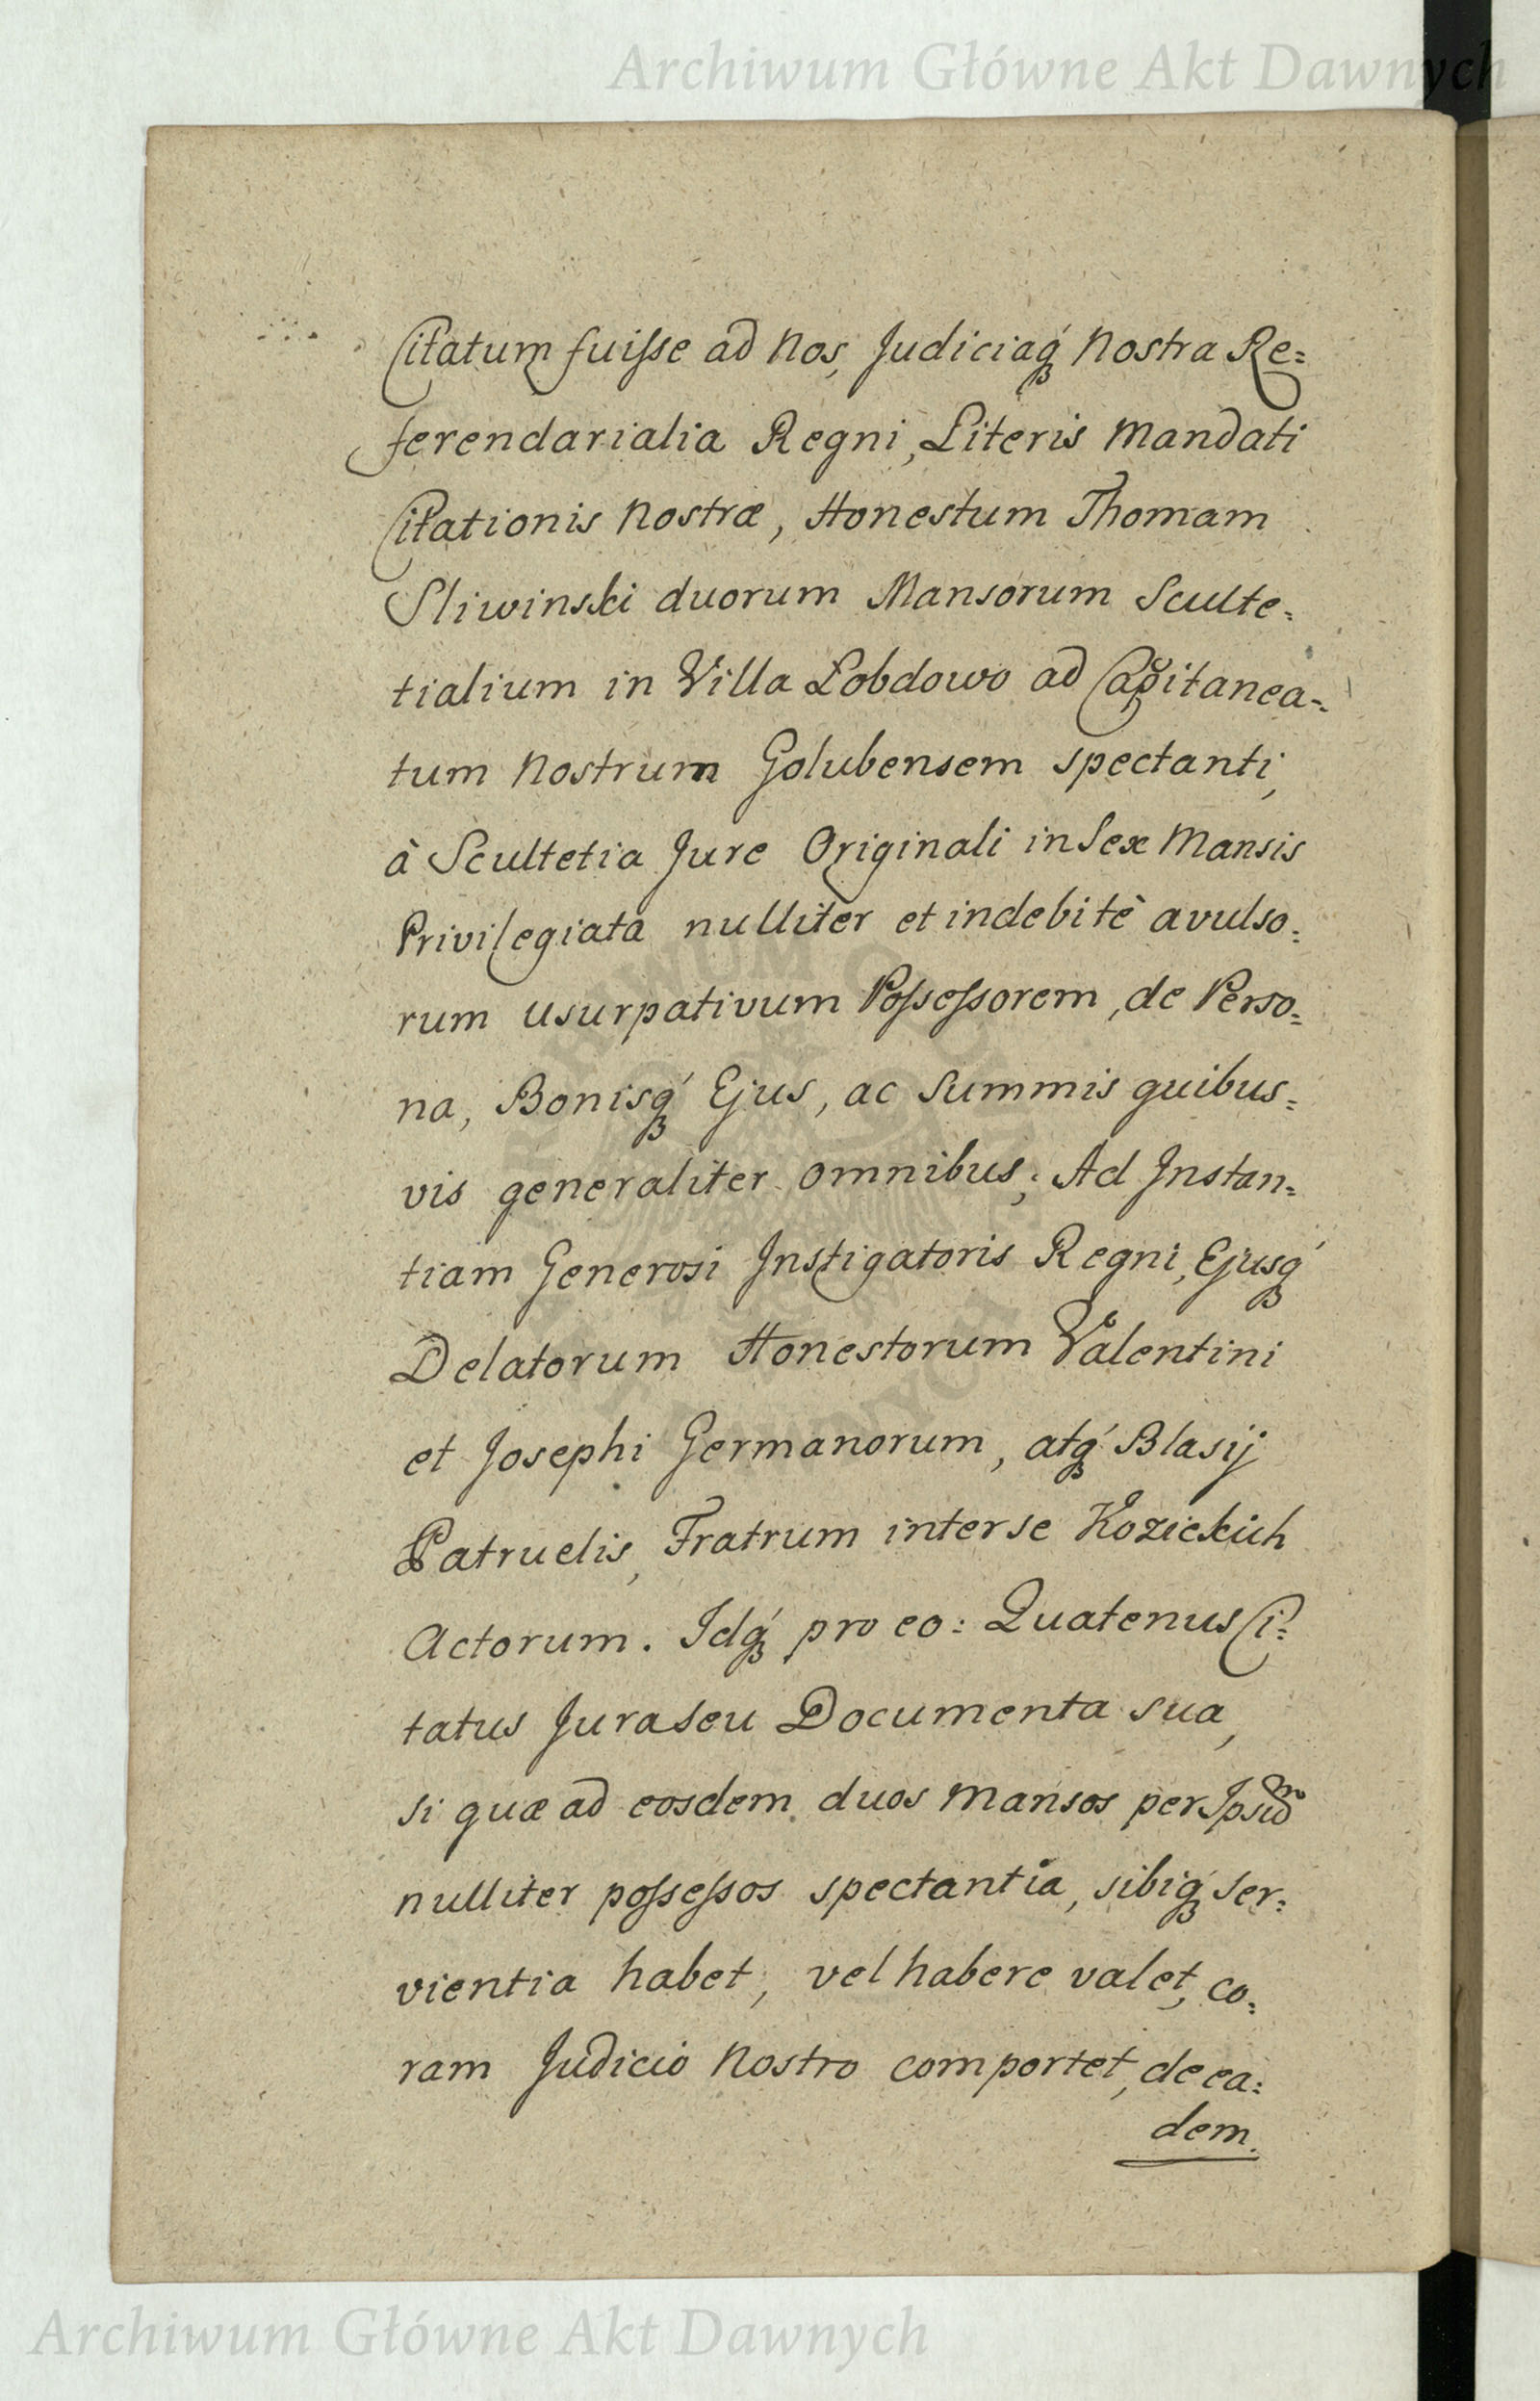 Archiwum Główne Akt Dawnych
Citatum fuisse ad Nos, Judiciaq́ꝫ Nostra Re=
ferendarialia Regni, Literis Mandati
Citationis Nostræ, Honestum Thomam
Sliwinski duorum Mansorum Sculte=
tialium in Villa Lobdowo ad Capitanea=
tum Nostrum Golubensem spectanti,
à Scultetia Jure Originali in Sex Mansis
Privilegiata nulliter et indebitè avulso=
rum usurpativum Possessorem, de Perso=
na, Bonisq́ꝫ Ejus, ac Summis quibus=
vis generaliter omnibus; Ad Instan=
tiam Generosi Instigatoris Regni, Ejusq́ꝫ
Delatorum Honestorum Valentini
et Josephi Germanorum, atq́ꝫ Blasij
Patruelis, Fratrum inter se Kozickich
Actorum. Idq́ꝫ pro eo: Quatenus Ci=
tatus Jura seu Documenta sua,
si quæ ad eosdem duos Mansos per Ipsum
nulliter possessos spectantia, sibiq́ꝫ ser=
vientia habet, vel habere valet, co=
ram Judicio Nostro comportet, de ea=
dem.
ARCHIWUM GŁÓWNE AKT DAWNYCH
Archiwum Główne Akt Dawnych